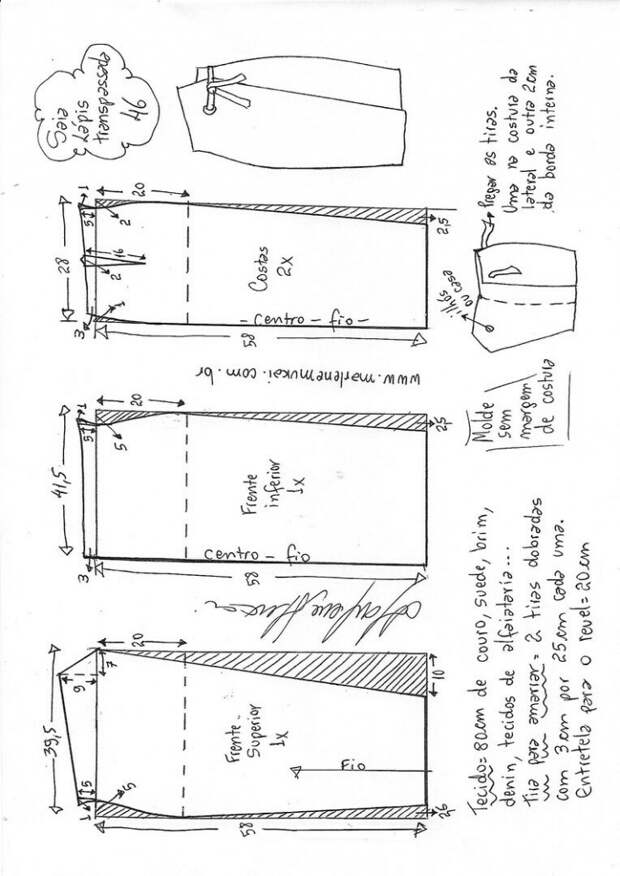 Saia
Lápis
transpassada
46
Pregar as tiras.
Uma na costura da
lateral e outra 2cm
da borda interna.
ilhós
ou case
28
1
5
2
20
16
2
1
3
Costas
2x
- centro - fio -
2,5
58
www.marlenemukai.com.br
Molde
sem
margem
de costura
41,5
1
5
5
20
3
Frente
inferior
1x
centro - fio
25
58
39,5
9
7
20
5
1
5
Frente
Superior
1x
Fio
10
26
58
Tecido= 80cm de couro, suede, brim,
denin, tecidos de alfaiataria...
Tira para amarrar= 2 tiras dobradas
com 3cm por 25cm cada uma.
Entretela para o revel= 20cm